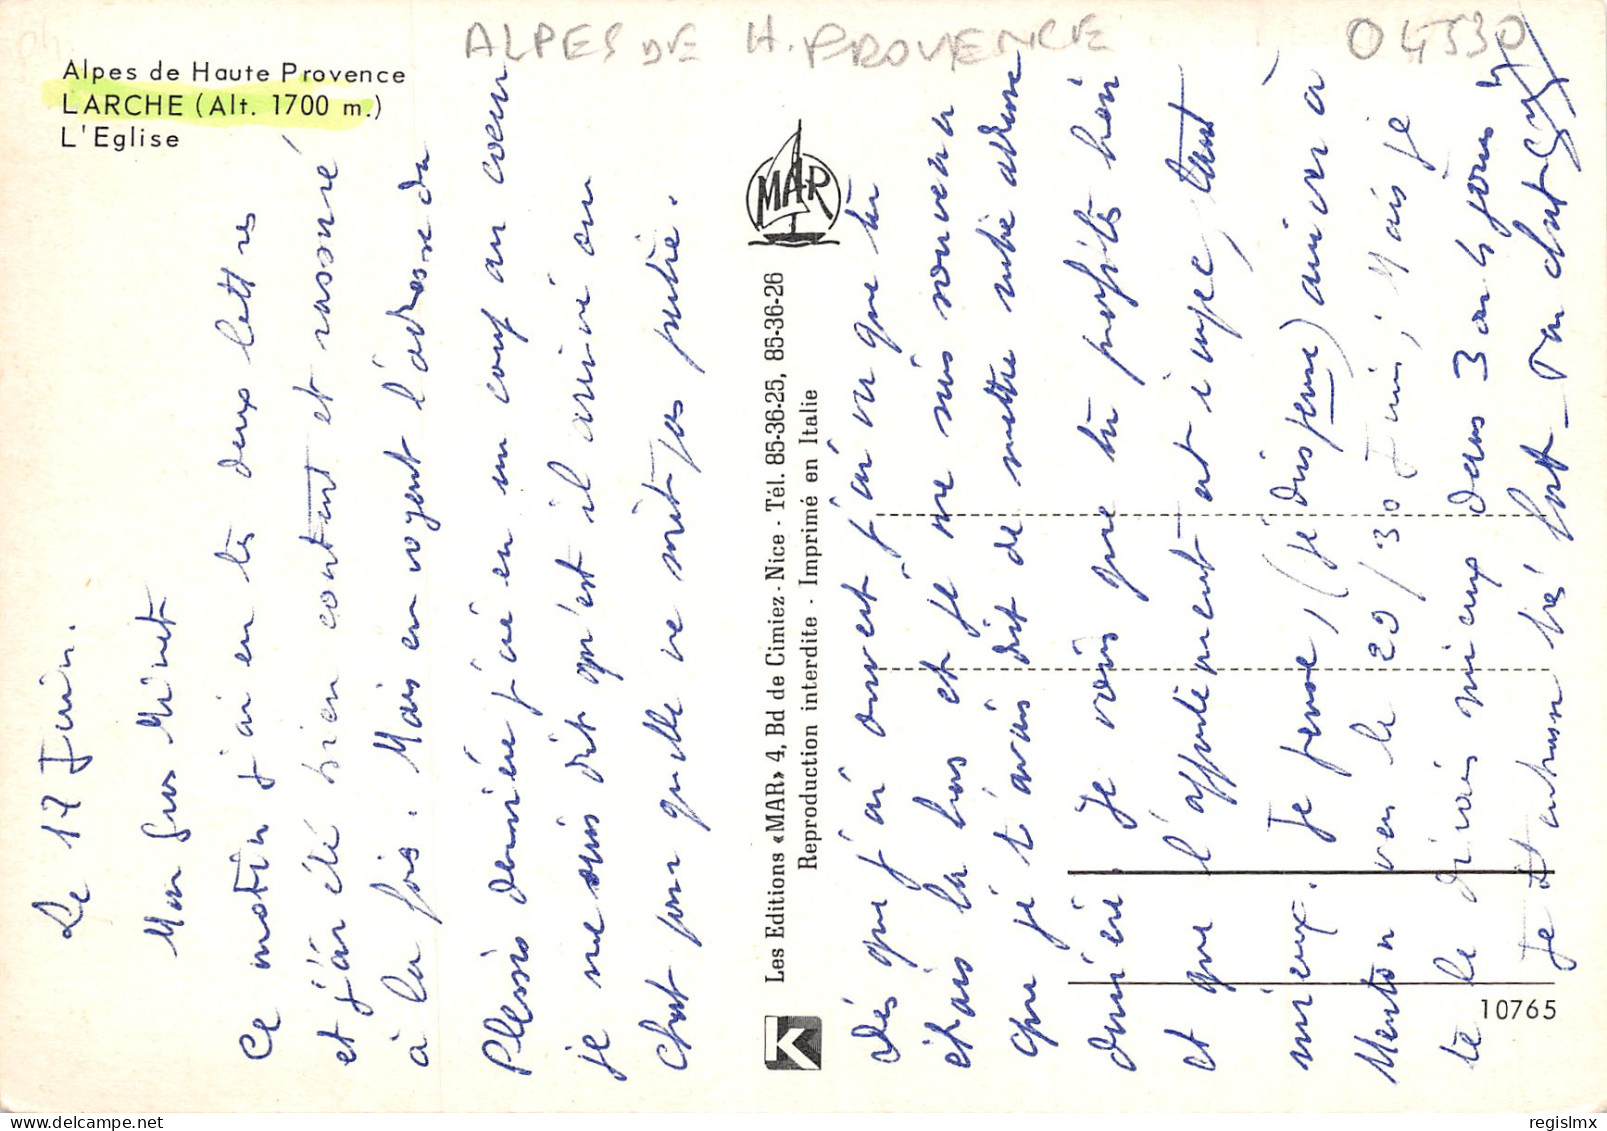 ALPES DE H. PROVENCE
04530
Alpes de Haute Provence
LARCHE (Alt. 1700 m.)
L'Eglise
Le 17 Juin.
Mon gros Minet
Ce matin j'ai eu tes deux lettres
et j'ai été bien content et rassuré
à la fois. Mais en voyant l'adresse du
Plessis dernière j'ai eu un coup au coeur
je me suis dit qu'est il arrivé ou
c'est pour qu'elle ne soit pas partie.
MAR
Les Editions «MAR» 4, Bd de Cimiez - Nice - Tél. 85-36-25, 85-36-26
Reproduction interdite - Imprimé en Italie
K
Dès que j'ai ouvert j'ai vu que tu
étais là bas et je me suis souvenu
que je t'avais dit de mettre notre adresse
Je vois que tu profites bien
et que l'appartement est impec, tant
mieux. Je pense, (je dis pense) arriver à
Menton vers le 20/30 Juin; Mais je
te le dirais mieux dans 3 ou 4 jours
Je t'embrasse très fort
10765
regislmx